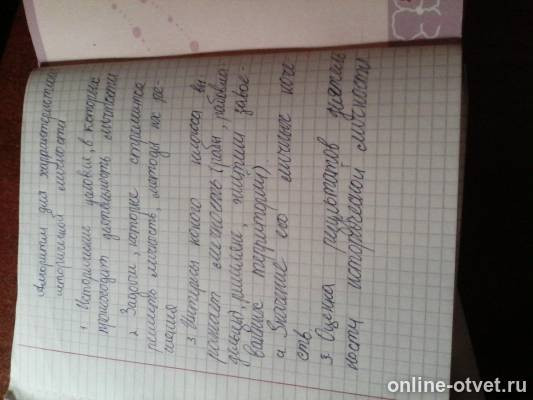 Алгоритм для характеристики
исторической личности
1. Исторические условия, в которых
происходит деятельность личности
2. Задачи, которые стремится
решить личность, методы их ре-
шения
3. Интересы какого класса вы
ражает личность (рабы, рабовла-
дельцы, римляне, жители завое-
ванных территорий).
4. Значение его личных каче
ств.
5. Оценка результатов деятель
ности исторической личности
online-otvet.ru